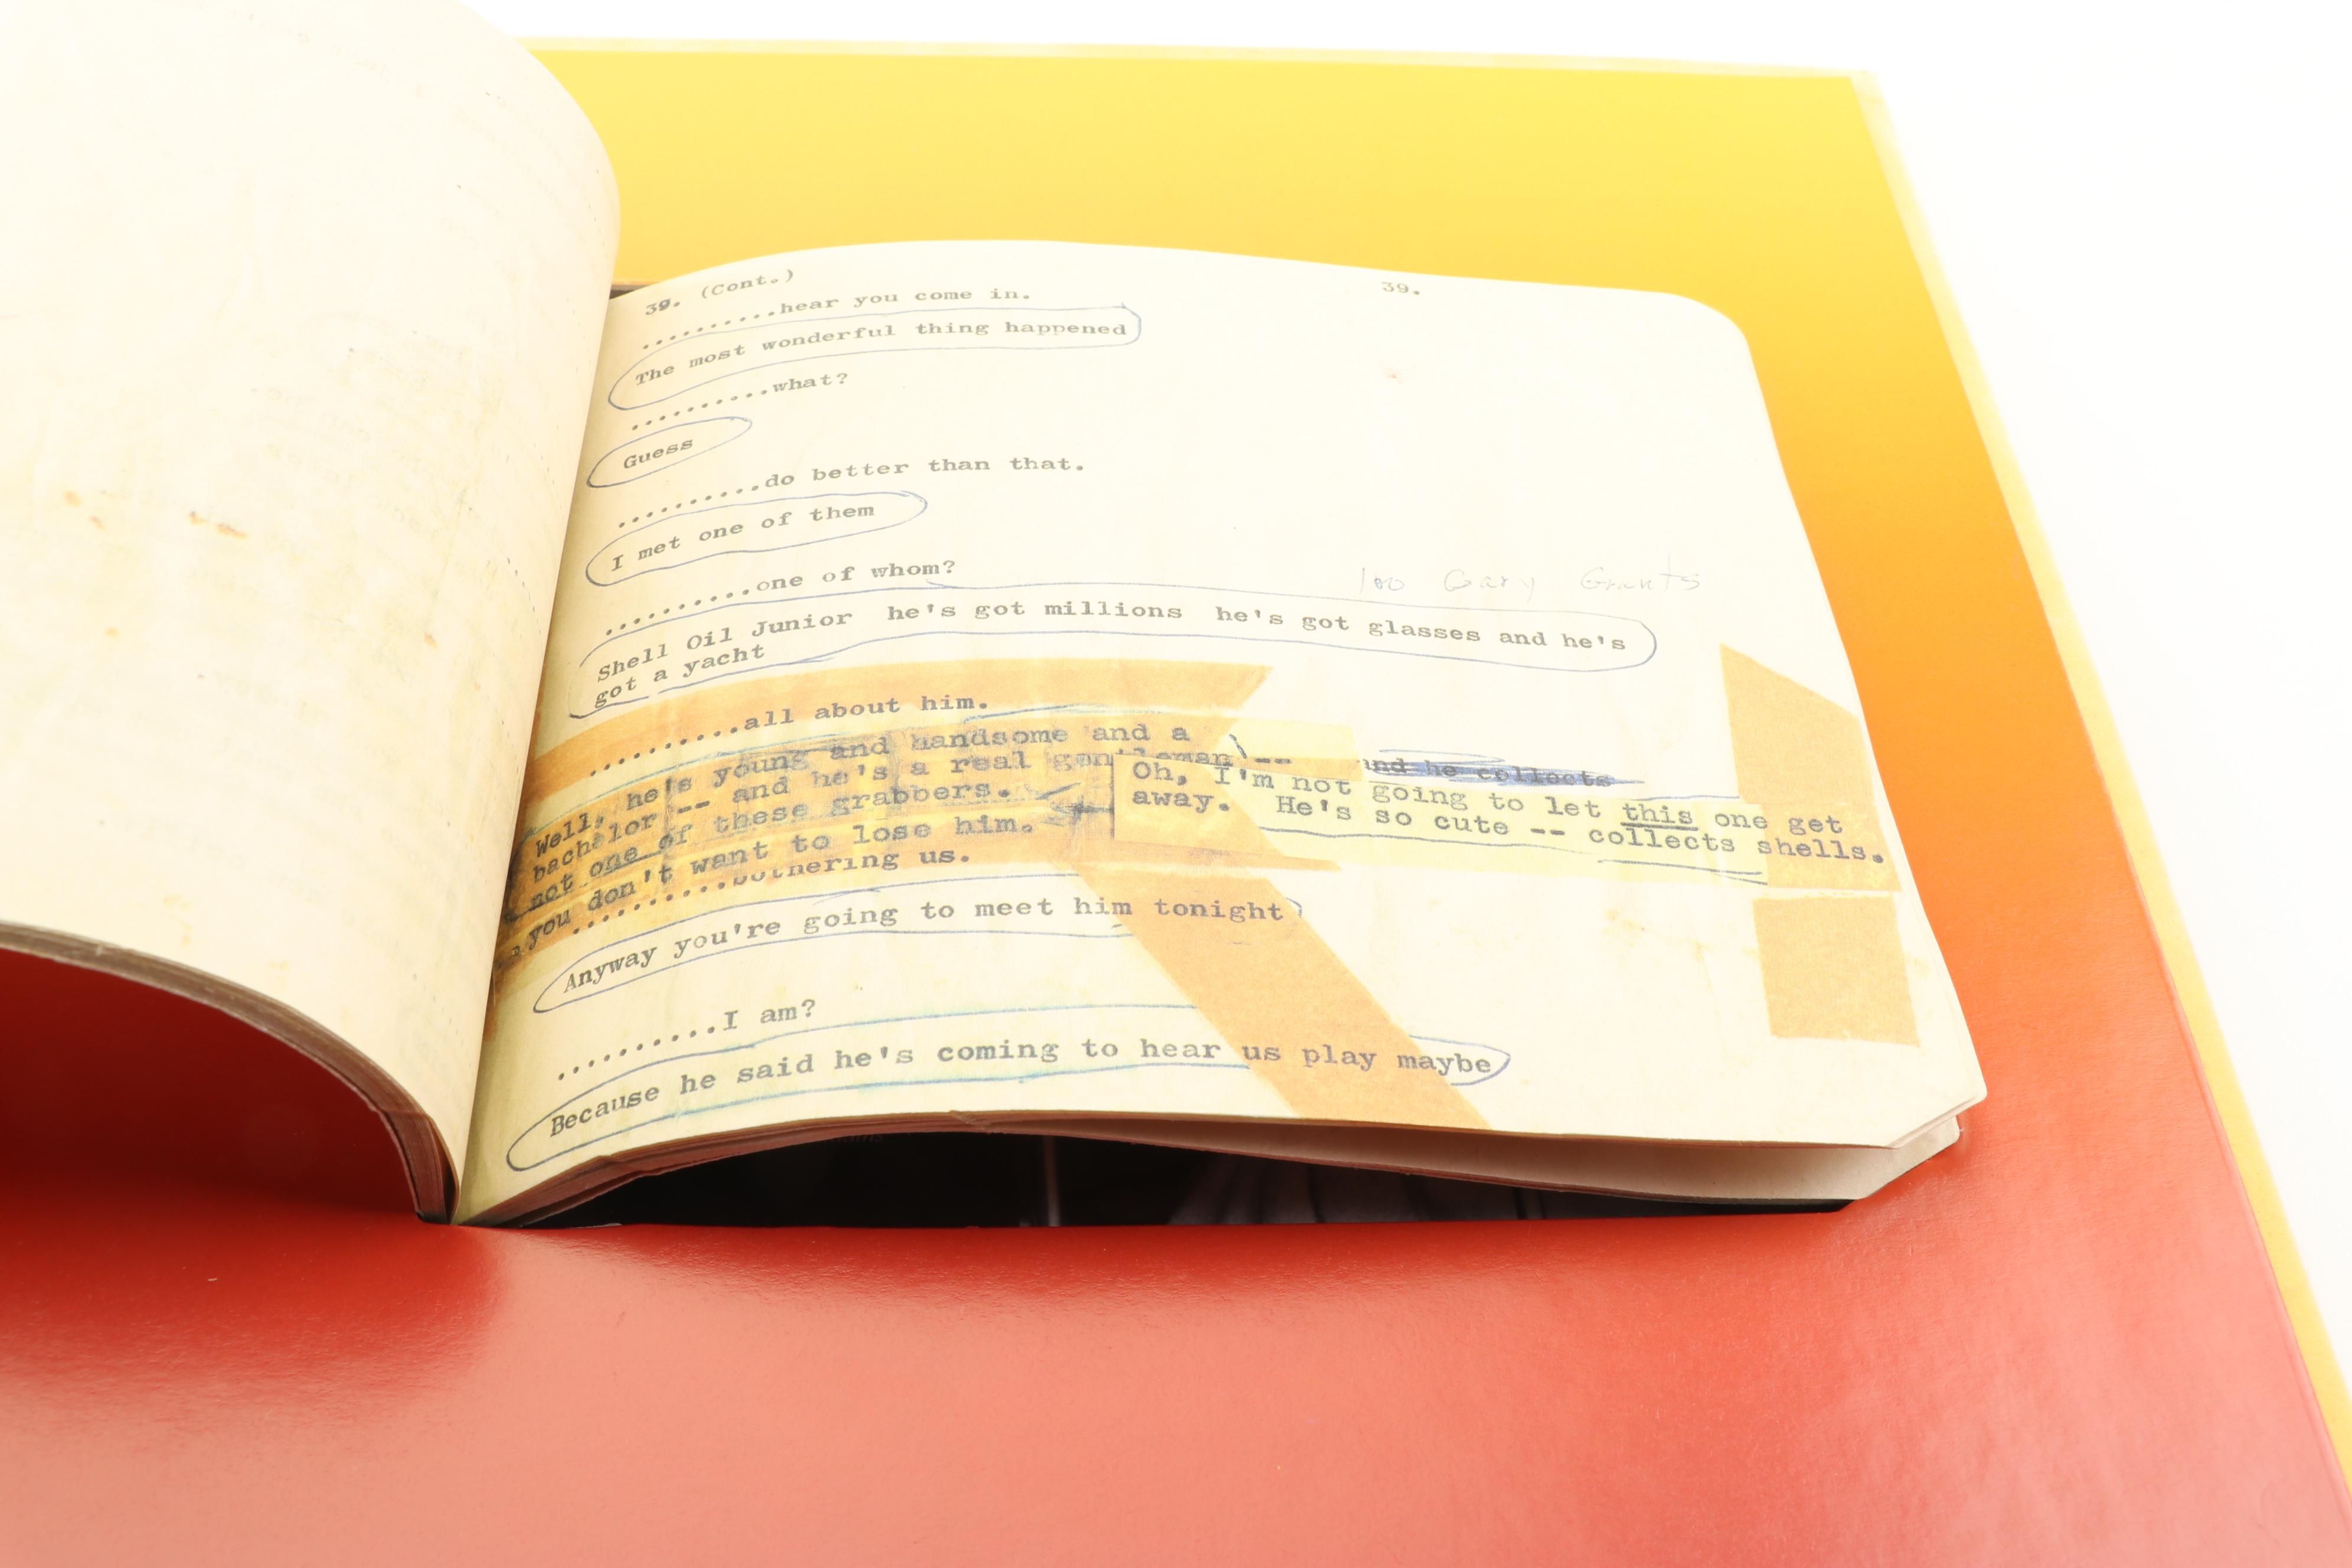 39. (Cont.) 39.
..........hear you come in.
The most wonderful thing happened
..........what?
Guess
..........do better than that.
I met one of them
..........one of whom?
100 Gary Grants
Shell Oil Junior he's got millions he's got glasses and he's
got a yacht
..........all about him.
Well, he's young and handsome and a
bachelor -- and he's a real gentleman --
not one of these grabbers.
you don't want to lose him.
and he collects
Oh, I'm not going to let this one get
away. He's so cute -- collects shells.
..........bothering us.
Anyway you're going to meet him tonight
..........I am?
Because he said he's coming to hear us play maybe